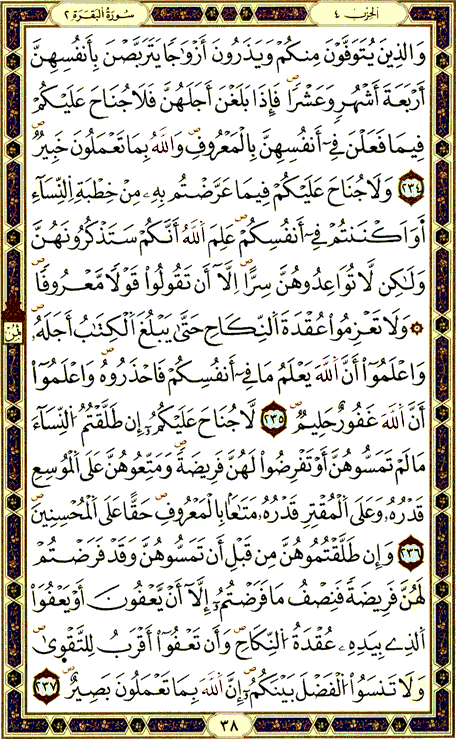 سُورَةُ الْبَقَرَة ٢
الحِزب ٤
وَالَّذِينَ يُتَوَفَّوْنَ مِنكُمْ وَيَذَرُونَ أَزْوَٰجًا يَتَرَبَّصْنَ بِأَنفُسِهِنَّ
أَرْبَعَةَ أَشْهُرٍ وَعَشْرًا ۖ فَإِذَا بَلَغْنَ أَجَلَهُنَّ فَلَا جُنَاحَ عَلَيْكُمْ
فِيمَا فَعَلْنَ فِےٓ أَنفُسِهِنَّ بِالْمَعْرُوفِ ۖ وَاللَّهُ بِمَا تَعْمَلُونَ خَبِيرٌ ۖ
٢٣٤ وَلَا جُنَاحَ عَلَيْكُمْ فِيمَا عَرَّضْتُم بِهِۦ مِنْ خِطْبَةِ اِ۬لنِّسَآءِ
اَ۪وَ اَكْنَنتُمْ فِےٓ أَنفُسِكُمْ ۖ عَلِمَ اَ۬للَّهُ أَنَّكُمْ سَتَذْكُرُونَهُنَّ
وَلَٰكِن لَّا تُوَاعِدُوهُنَّ سِرًّا اِلَّآ أَن تَقُولُواْ قَوْلًا مَّعْرُوفًا ۖ
۞ وَلَا تَعْزِمُواْ عُقْدَةَ اَ۬لنِّكَاحِ حَتَّىٰ يَبْلُغَ اَ۬لْكِتَٰبُ أَجَلَهُۥ ۖ
وَاعْلَمُوٓاْ أَنَّ اَ۬للَّهَ يَعْلَمُ مَا فِےٓ أَنفُسِكُمْ فَاحْذَرُوهُ ۖ وَاعْلَمُوٓاْ
أَنَّ اَ۬للَّهَ غَفُورٌ حَلِيمٌ ۖ ٢٣٥ لَّا جُنَاحَ عَلَيْكُمُۥٓ إِن طَلَّقْتُمُ اُ۬لنِّسَآءَ
مَا لَمْ تَمَسُّوهُنَّ أَوْ تَفْرِضُواْ لَهُنَّ فَرِيضَةً ۖ وَمَتِّعُوهُنَّ عَلَى اَ۬لْمُوسِعِ
قَدْرُهُۥ وَعَلَى اَ۬لْمُقْتِرِ قَدْرُهُۥ مَتَٰعًۢا بِالْمَعْرُوفِ ۖ حَقًّا عَلَى اَ۬لْمُحْسِنِينَ ۖ
٢٣٦ وَإِن طَلَّقْتُمُوهُنَّ مِن قَبْلِ أَن تَمَسُّوهُنَّ وَقَدْ فَرَضْتُمْ
لَهُنَّ فَرِيضَةً فَنِصْفُ مَا فَرَضْتُمُۥٓ إِلَّآ أَنْ يَّعْفُونَ أَوْ يَعْفُوَاْ
اَ۬لَّذِے بِيَدِهِۦ عُقْدَةُ اُ۬لنِّكَاحِ ۖ وَأَن تَعْفُوٓاْ أَقْرَبُ لِلتَّقْوَىٰ ۖ
وَلَا تَنسَوُاْ اُ۬لْفَضْلَ بَيْنَكُمُۥٓ ۖ إِنَّ اَ۬للَّهَ بِمَا تَعْمَلُونَ بَصِيرٌ ۖ ٢٣٧
٣٨